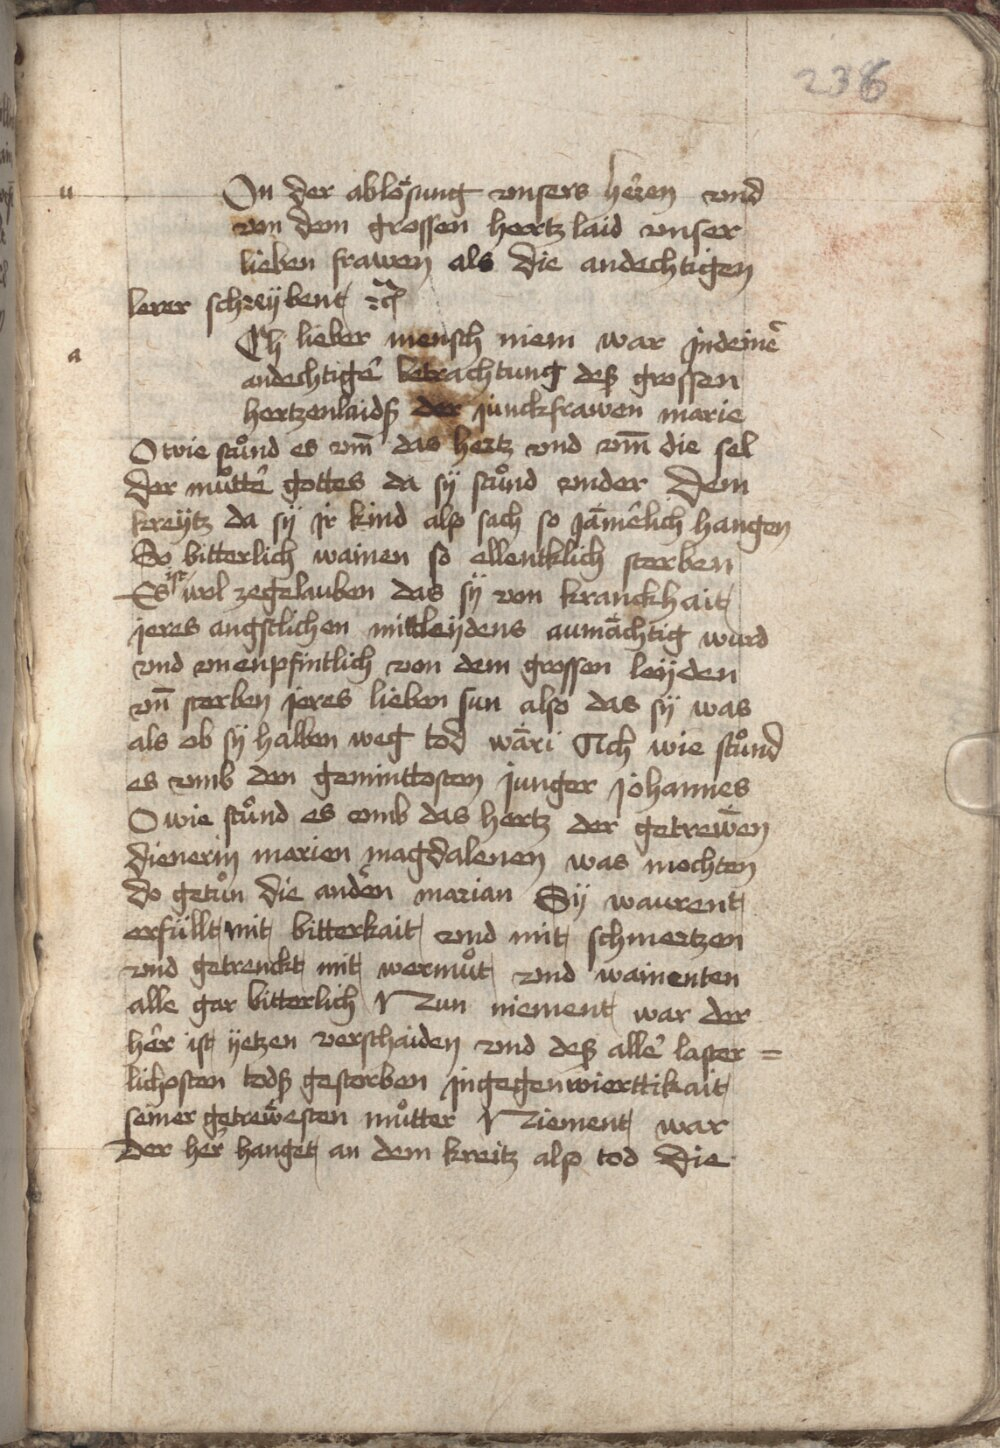 236
u
On der ablöſung vnſers heren vnd
von dem groſſen hertz laid vnſer
lieben frawen als die andechtigen
lerer ſchreÿbent ꝛc
a
Ch lieber menſch niem war Jndeinē
andechtigē betrachtung deß groſſen
hertzenlaidß der junckfrawen marie
O wie ſtuͦnd es vm̄ das hertz vnd vm̄ die ſel
der muͦtte gottes da ſÿ ſtuͦnd vnder dem
kreÿtz da ſÿ Jr kind alſo ſach ſo Jämelich hangen
So bitterlich wainen ſo ellentklich ſterben
Es iſt wol zegelauben das ſÿ von kranckhait
jeres angſtlichen mitleÿdens aumächtig wurd
vnd vnenpfintlich von dem groſſen leÿden
vn̄ ſterben jeres lieben ſun alſo das ſÿ was
als ob ſÿ halben weg tod wäri Ach wie ſtuͦnd
es vmb den geminttoſten junger johannes
O wie ſtuͦnd es vmb das hertz der getrewen
dienerin marien magdalenen was mochten
do getuͦn die anden marian Sÿ waurent
erfüllt mit bitterkait vnd mit ſchmertzen
vnd getrenckt mit wermuͦt vnd wainenten
alle gar bitterlich Nun niement war der
her iſt ÿetzen verſchaiden vnd deß alle laſter =
lichoſten todß geſtorben Jngegenwierttikait
ſeiner getreweſten muͦtter Niement war
Der her hanget an dem kreitz alſo tod die